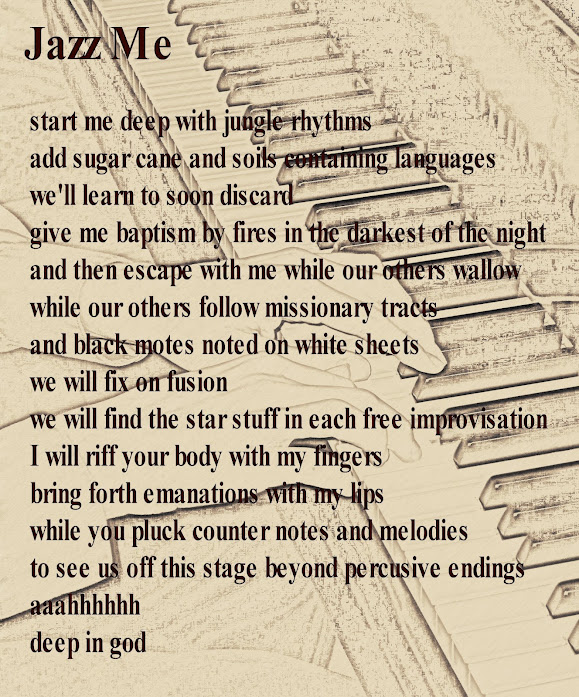 Jazz Me
start me deep with jungle rhythms
add sugar cane and soils containing languages
we'll learn to soon discard
give me baptism by fires in the darkest of the night
and then escape with me while our others wallow
while our others follow missionary tracts
and black motes noted on white sheets
we will fix on fusion
we will find the star stuff in each free improvisation
I will riff your body with my fingers
bring forth emanations with my lips
while you pluck counter notes and melodies
to see us off this stage beyond percusive endings
aaahhhhhh
deep in god